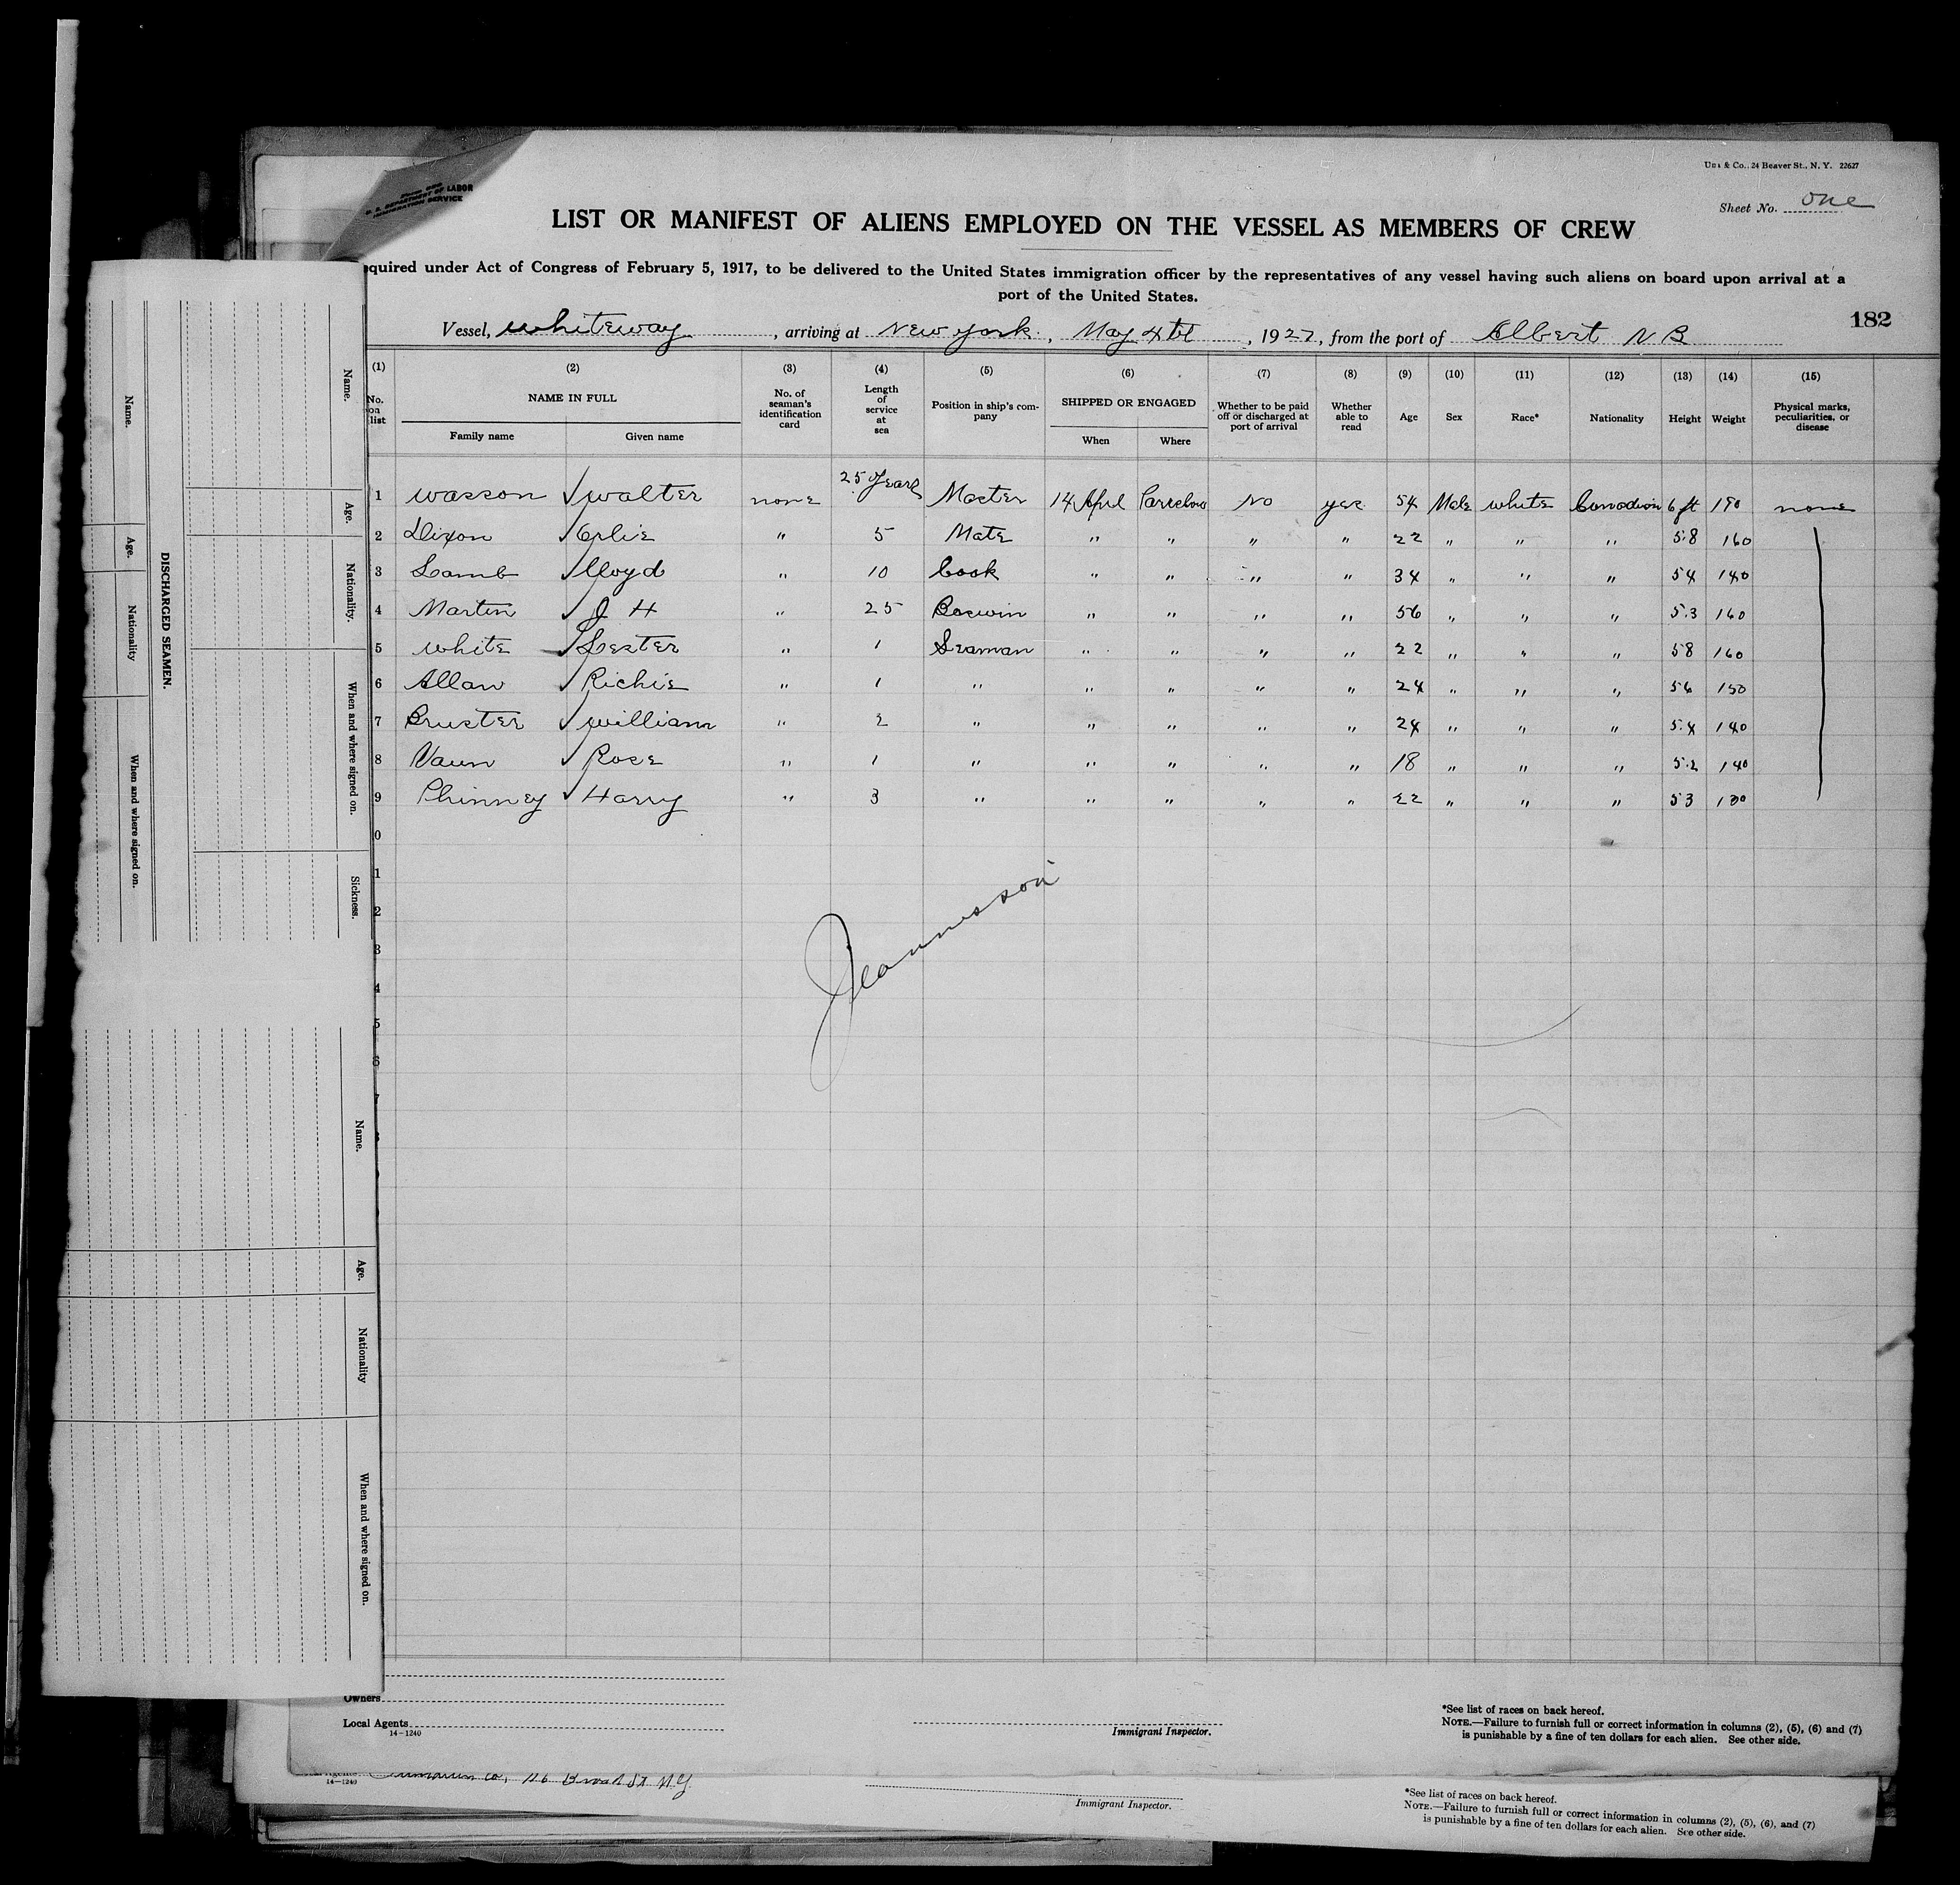 Form 689
U. S. DEPARTMENT OF LABOR
IMMIGRATION SERVICE
& Co., 24 Beaver St., N. Y. 22627
Sheet No. one
LIST OR MANIFEST OF ALIENS EMPLOYED ON THE VESSEL AS MEMBERS OF CREW
quired under Act of Congress of February 5, 1917, to be delivered to the United States immigration officer by the representatives of any vessel having such aliens on board upon arrival at a
port of the United States.
182
Vessel, Whiteway, arriving at New York, May 4th, 1927, from the port of Albert N B
(1) (2) (3) (4) (5) (6) (7) (8) (9) (10) (11) (12) (13) (14) (15)
No. on list NAME IN FULL Family name Given name No. of seaman's identification card Length of service at sea Position in ship's company SHIPPED OR ENGAGED When Where Whether to be paid off or discharged at port of arrival Whether able to read Age Sex Race* Nationality Height Weight Physical marks, peculiarities, or disease
1 Wasson Walter none 25 Years Master 14 April No yes 54 Male white Canadian 6 ft 190 none
2 Dixon Orlie " 5 Mate " " " " 22 " " " 5.8 160
3 Lamb Lloyd " 10 Cook " " " " 34 " " " 54 140
4 Martin J H " 25 Boswin " " " " 56 " " " 5.3 160
5 White Lester " 1 Seaman " " " " 22 " " " 58 160
6 Allan Richie " 1 " " " " " 24 " " " 56 150
7 Bruster William " 2 " " " " " 24 " " " 5.4 140
8 Vaun Rose " 1 " " " " " 18 " " " 5.2 140
9 Phinney Harry " 3 " " " " " 22 " " " 53 130
0
1
2
3
4
5
6
7
DISCHARGED SEAMEN.
Name.
Age.
Nationality
When and where signed on.
Name.
Age.
Nationality.
When and where signed on.
Sickness.
Name.
Age.
Nationality
When and where signed on.
Owners
Local Agents
14-1240
Immigrant Inspector.
*See list of races on back hereof.
NOTE.—Failure to furnish full or correct information in columns (2), (5), (6) and (7)
is punishable by a fine of ten dollars for each alien. See other side.
Co, 116 Broad St N.Y.
14-1240
Immigrant Inspector.
*See list of races on back hereof.
NOTE.—Failure to furnish full or correct information in columns (2), (5), (6), and (7)
is punishable by a fine of ten dollars for each alien. See other side.